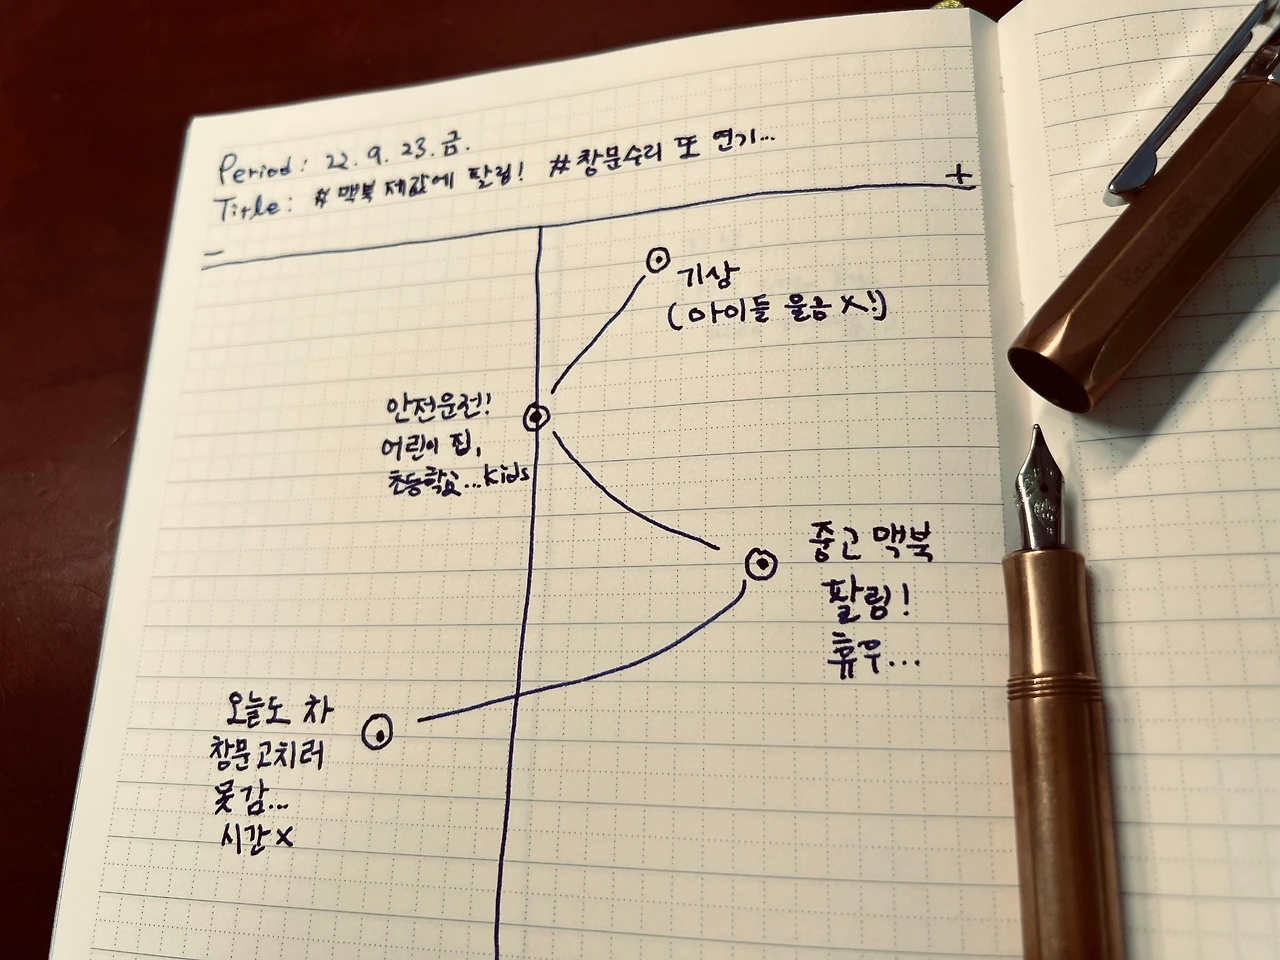 Period: 22. 9. 23. 금.
Title: # 맥북 제값에 팔림! #창문수리 또 연기...
- +
기상
(아이들 울음 X!)
안전운전!
어린이 집,
초등학교...kids
중고 맥북
팔림!
휴우...
오늘도 차
창문고치러
못감...
시간 X